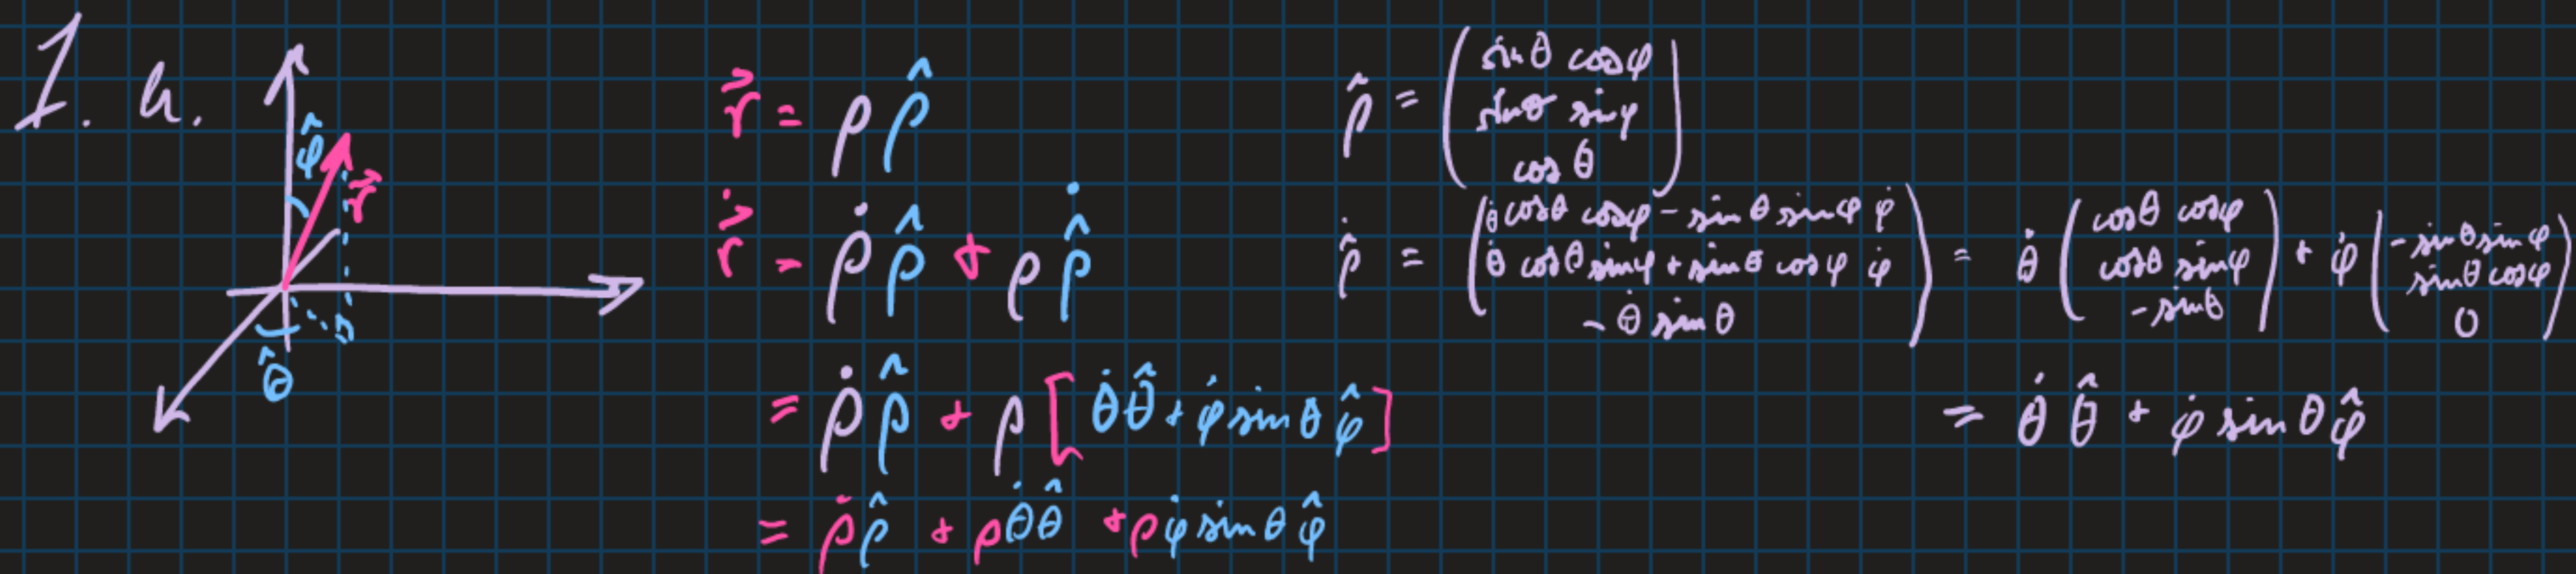 1. h.
φ̂
r⃗
θ̂
r⃗ = ρ ρ̂
ṙ⃗ = ρ̇ ρ̂ + ρ ρ̂̇
= ρ̇ ρ̂ + ρ [ θ̇ θ̂ + φ̇ sin θ φ̂ ]
= ρ̇ ρ̂ + ρ θ̇ θ̂ + ρ φ̇ sin θ φ̂
ρ̂ = ( sin θ cos φ
sin θ sin φ
cos θ )
ρ̂̇ = ( θ̇ cos θ cos φ - sin θ sin φ φ̇
θ̇ cos θ sin φ + sin θ cos φ φ̇
- θ̇ sin θ ) = θ̇ ( cos θ cos φ
cos θ sin φ
- sin θ ) + φ̇ ( - sin θ sin φ
sin θ cos φ
0 )
= θ̇ θ̂ + φ̇ sin θ φ̂